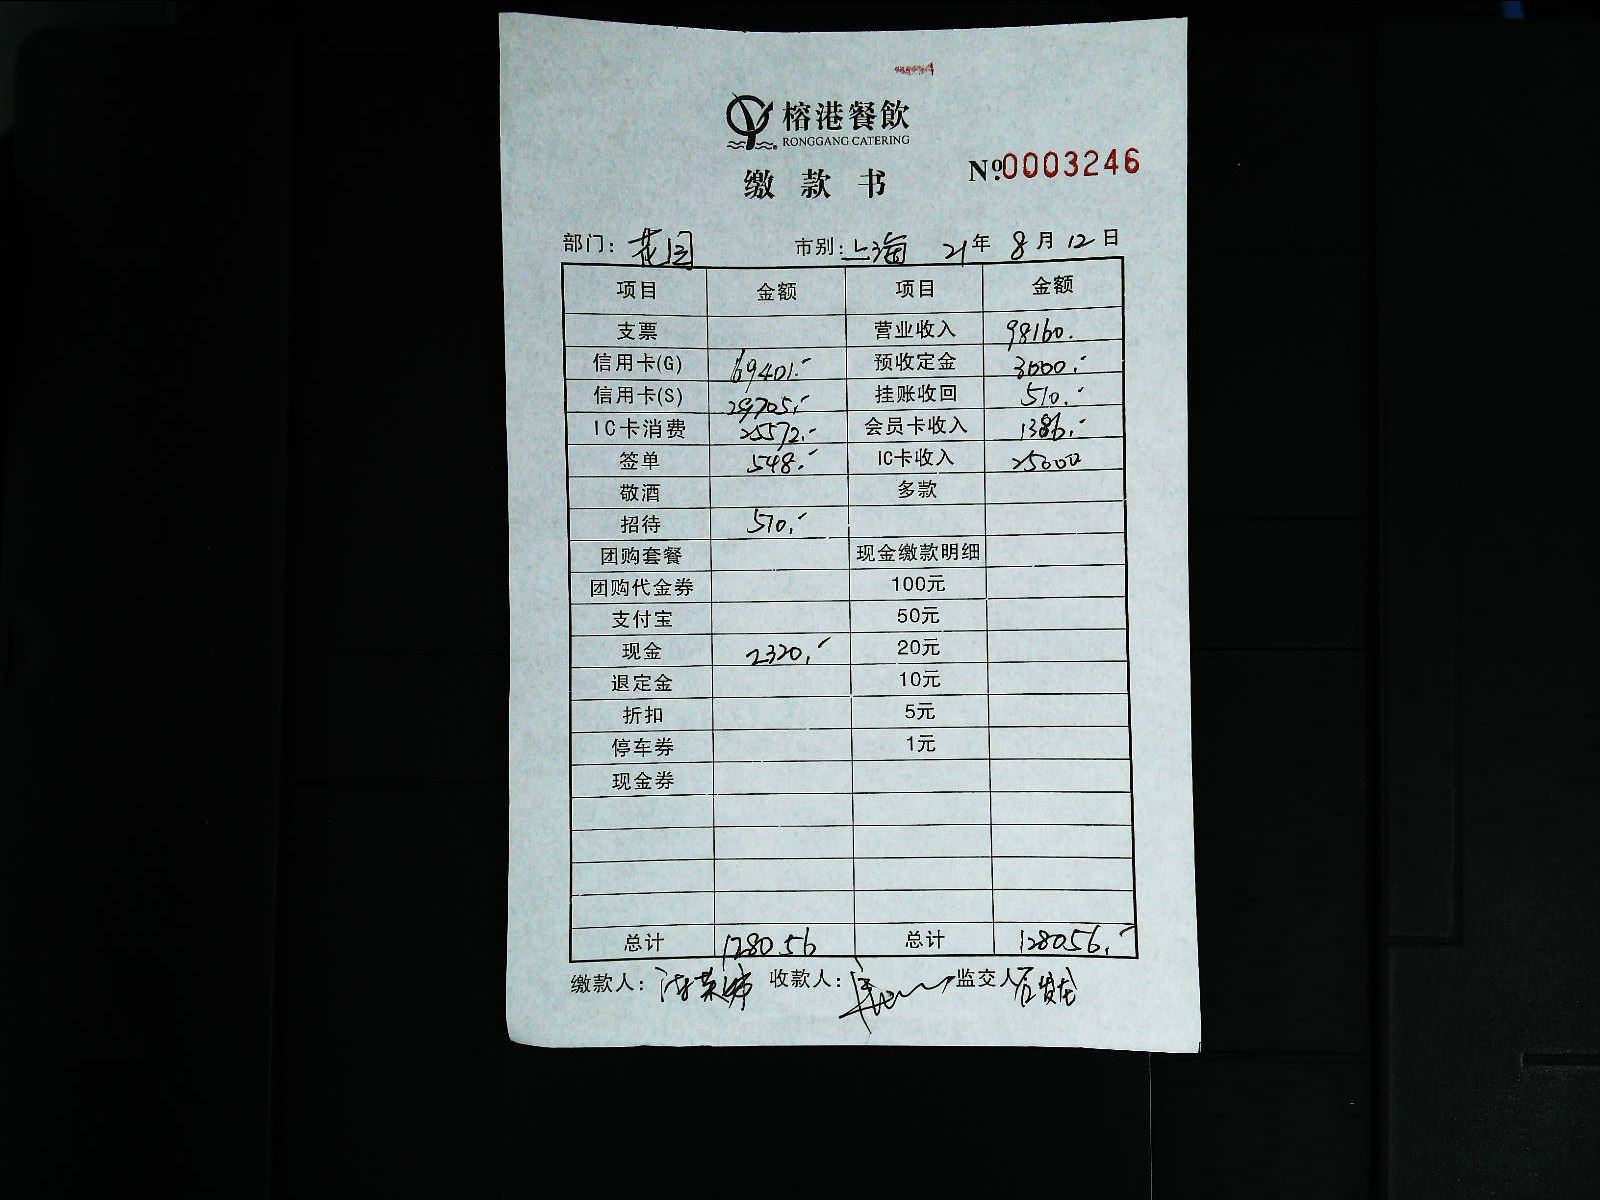 榕港餐飲
RONGGANG CATERING
缴款书
Nº.0003246
部门：花园 市别：上海 21年 8月 12日
项目 金额 项目 金额
支票 营业收入 98160.
信用卡(G) 69401.- 预收定金 3000.-
信用卡(S) 29705.- 挂账收回 510.-
IC卡消费 25572.- 会员卡收入 1386.-
签单 548.- IC卡收入 25000
敬酒 多款
招待 510.-
团购套餐 现金缴款明细
团购代金券 100元
支付宝 50元
现金 2320.- 20元
退定金 10元
折扣 5元
停车券 1元
现金券
总计 128056 总计 128056.-
缴款人： 收款人： 监交人